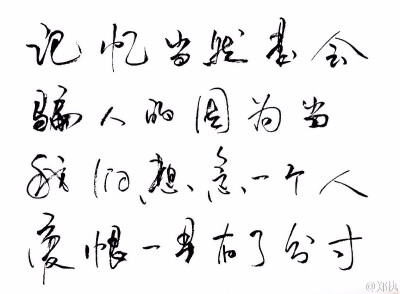 记忆当然是会
骗人的因为当
我们想念一个人
爱恨一旦有了分寸
@郑执